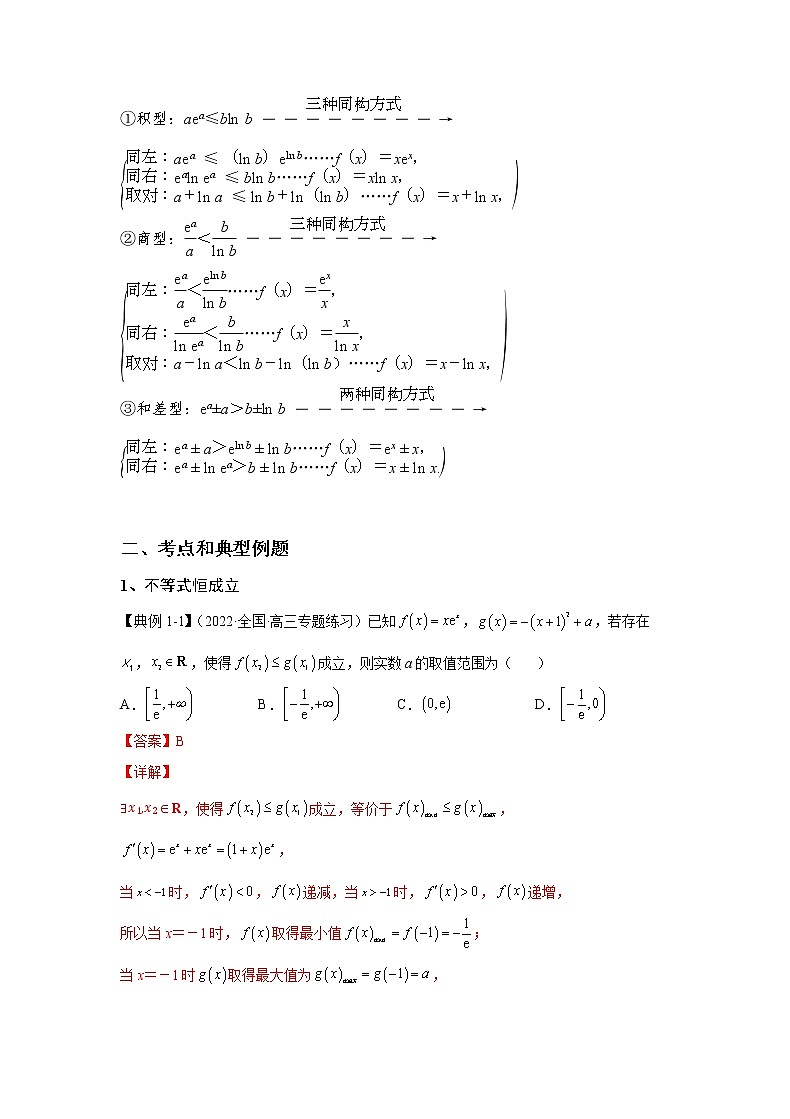 三种同构方式
①积型：aeᵃ≤bln b －－－－－－－－→
同左：aeᵃ ≤（ln b）e^{ln b}……f（x）＝xeˣ，
同右：eᵃln eᵃ ≤ bln b……f（x）＝xln x，
取对：a＋ln a ≤ ln b＋ln（ln b）……f（x）＝x＋ln x，
三种同构方式
②商型：eᵃ/a＜b/ln b －－－－－－－－→
同左：eᵃ/a＜e^{ln b}/ln b……f（x）＝eˣ/x，
同右：eᵃ/ln eᵃ＜b/ln b……f（x）＝x/ln x，
取对：a－ln a＜ln b－ln（ln b）……f（x）＝x－ln x，
两种同构方式
③和差型：eᵃ±a＞b±ln b －－－－－－－－→
同左：eᵃ±a＞e^{ln b}±ln b……f（x）＝eˣ±x，
同右：eᵃ±ln eᵃ＞b±ln b……f（x）＝x±ln x.
二、考点和典型例题
1、不等式恒成立
【典例 1-1】（2022·全国·高三专题练习）已知 f(x)=xeˣ，g(x)=-(x+1)²+a，若存在
x₁，x₂∈R，使得 f(x₂)≤g(x₁)成立，则实数a的取值范围为（　　）
A．[1/e,+∞) B．[-1/e,+∞) C．(0,e) D．[-1/e,0)
【答案】B
【详解】
∃x₁,x₂∈R，使得 f(x₂)≤g(x₁)成立，等价于 f(x)min≤g(x)max，
f′(x)=eˣ+xeˣ=(1+x)eˣ，
当 x<-1时，f′(x)<0，f(x)递减，当 x>-1时，f′(x)>0，f(x)递增，
所以当 x＝－1 时，f(x)取得最小值 f(x)min=f(-1)=-1/e；
当 x＝－1 时 g(x)取得最大值为 g(x)max=g(-1)=a，